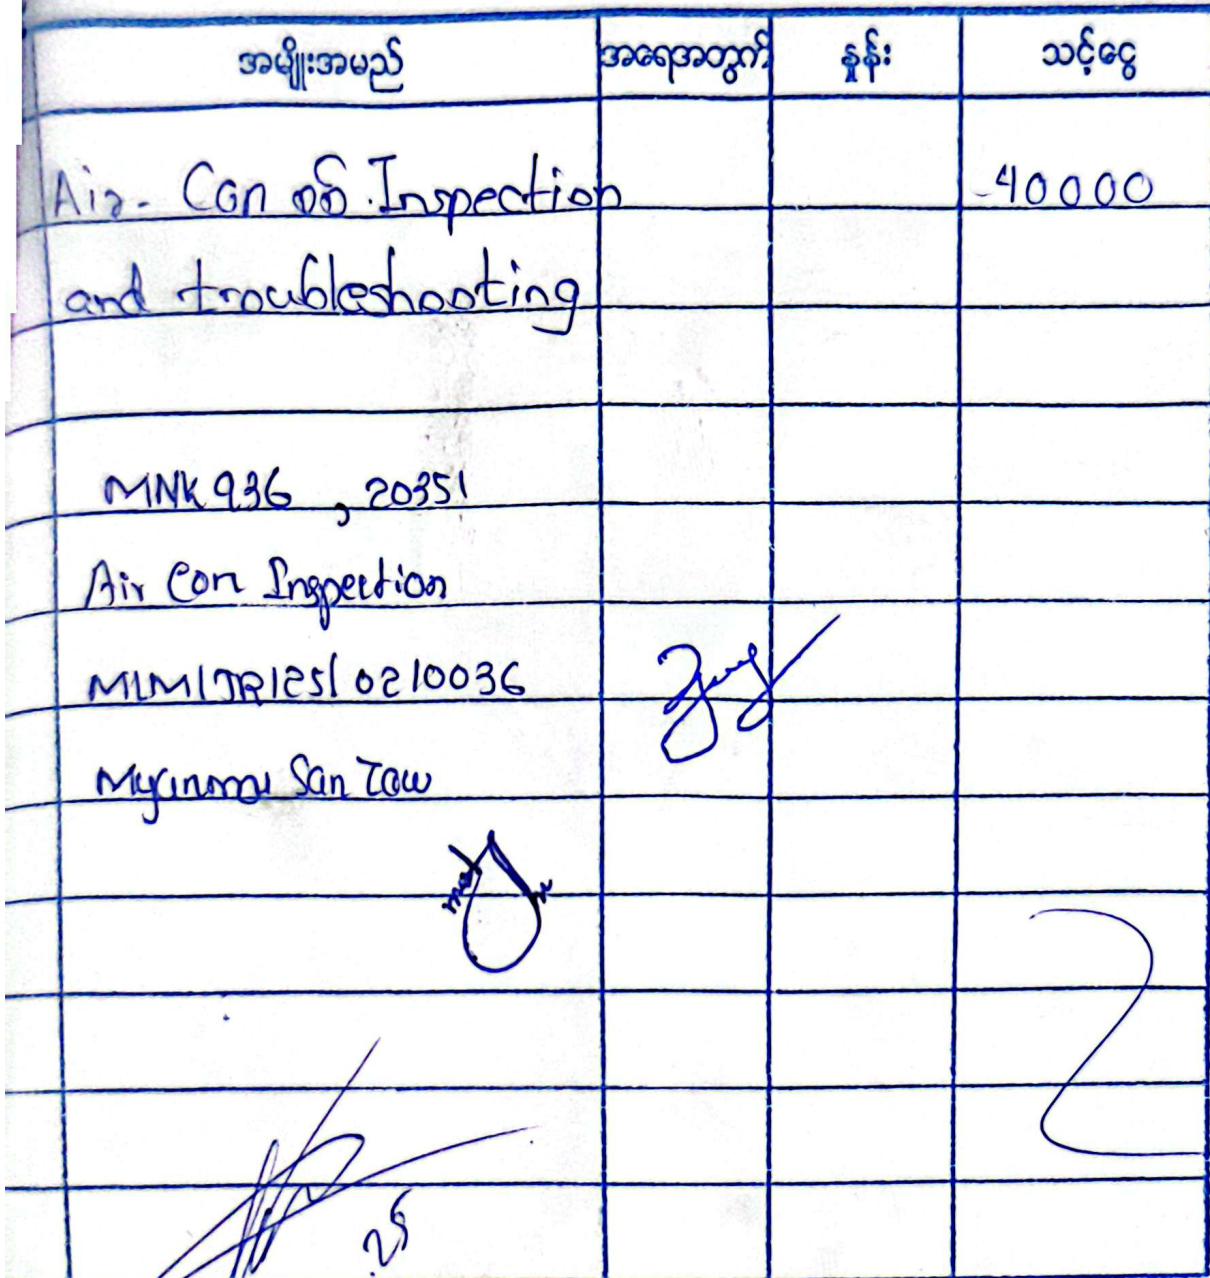 အမျိုးအမည် အရေအတွက် နှုန်း သင့်ငွေ
Air-Con စစ် Inspection -40000
and troubleshooting
MNK 936 , 20351
Air Con Inspection
MLM/JR/25/0210036
Myanmar San Taw
25